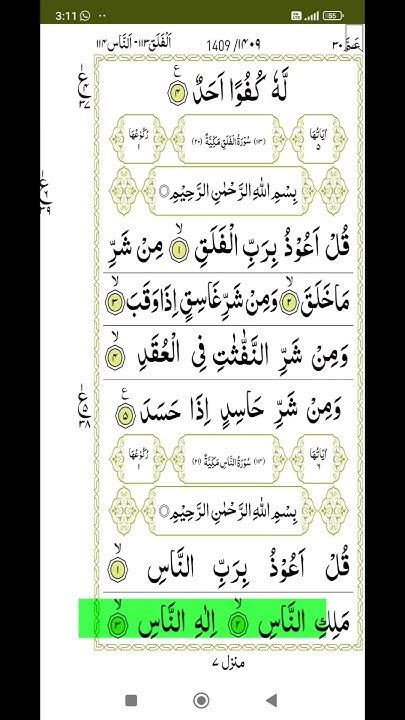 3:11
55
اَلْفَلَق ١١٣ - اَلنَّاس ١١٤
1409 /١٤٠٩
عَمَّ ٣٠
لَّهٗ كُفُوًا اَحَدٌ ۴
ع ۴ ٣٧
اٰيَاتُهَا ٥
سُوْرَةُ الْفَلَقِ مَكِّيَّةٌ (٢٠)
رُكُوْعُهَا ١
بِسْمِ اللّٰهِ الرَّحْمٰنِ الرَّحِيْمِ
قُلْ اَعُوْذُ بِرَبِّ الْفَلَقِ ۙ ١ مِنْ شَرِّ
مَا خَلَقَ ۙ ٢ وَمِنْ شَرِّ غَاسِقٍ اِذَا وَقَبَ ۙ ٣
وَمِنْ شَرِّ النَّفّٰثٰتِ فِي الْعُقَدِ ۙ ۴
وَمِنْ شَرِّ حَاسِدٍ اِذَا حَسَدَ ٥
ع ٥ ٣٨
اٰيَاتُهَا ٦
سُوْرَةُ النَّاسِ مَكِّيَّةٌ (٢١)
رُكُوْعُهَا ١
بِسْمِ اللّٰهِ الرَّحْمٰنِ الرَّحِيْمِ
قُلْ اَعُوْذُ بِرَبِّ النَّاسِ ۙ ١
مَلِكِ النَّاسِ ۙ ٢ اِلٰهِ النَّاسِ ۙ ٣
منزل ٧